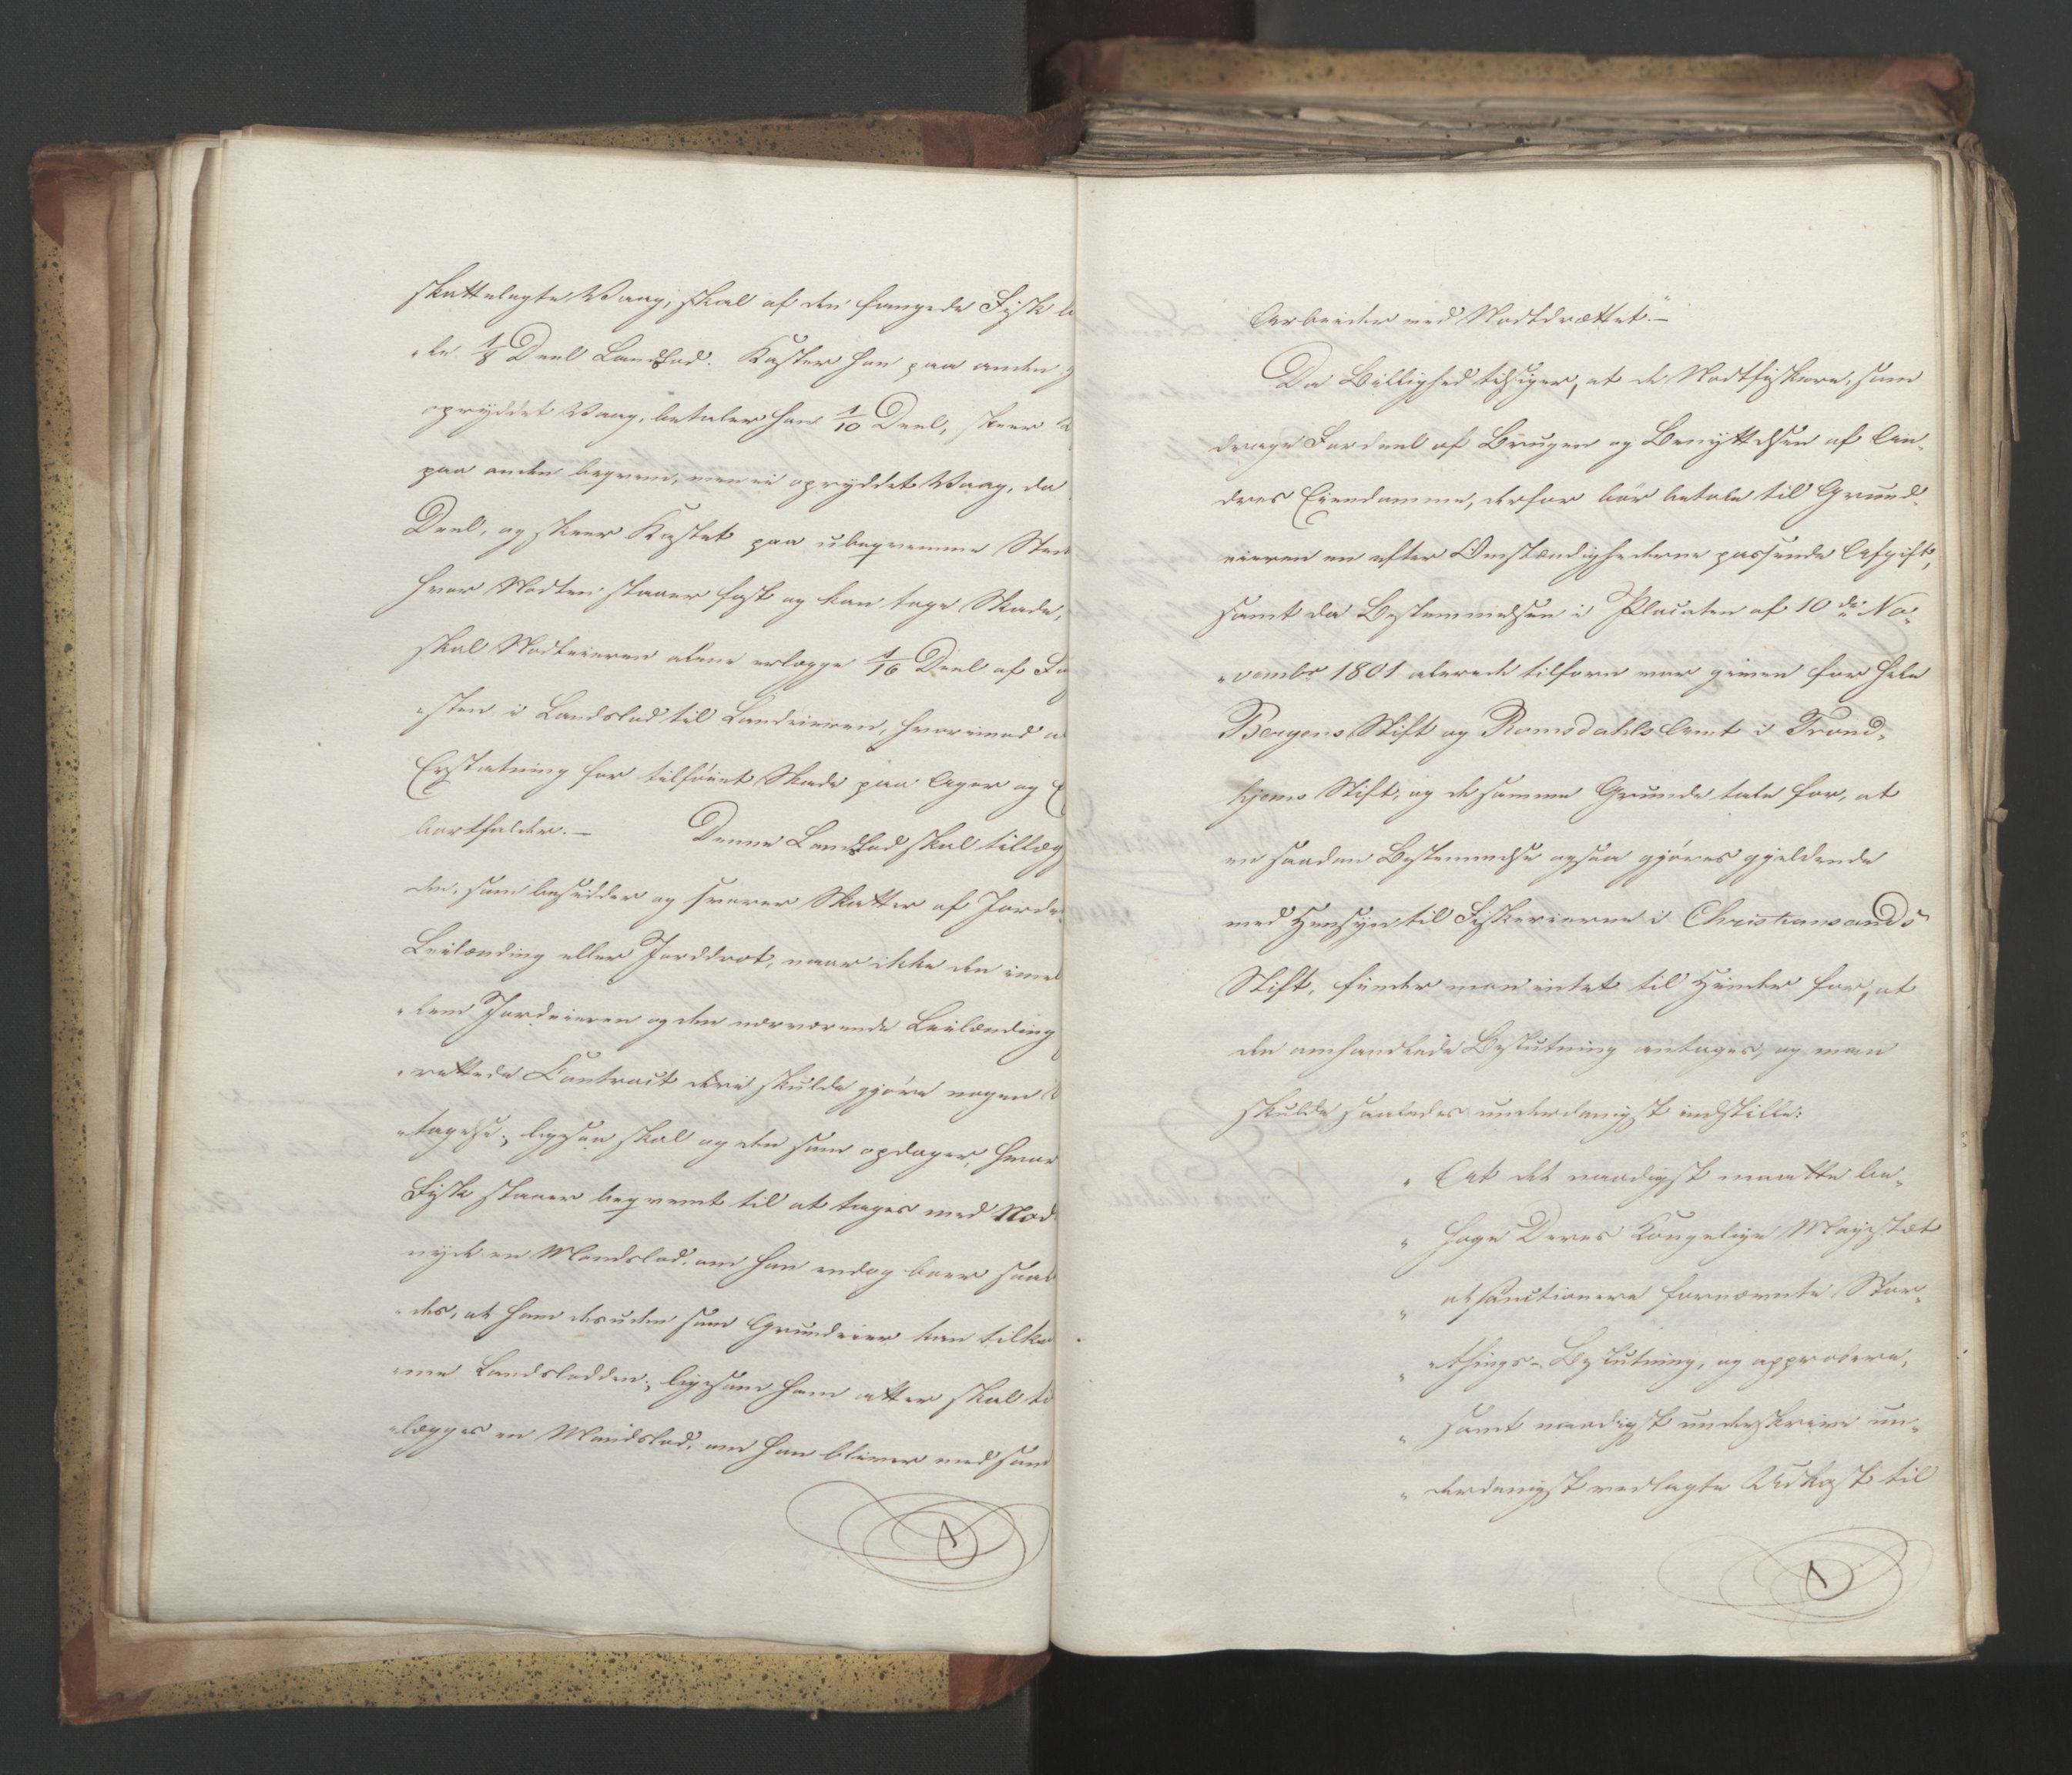 skattelagte Vaag, skal af den fangede Fisk be
"tale 1/8 Deel Landslod. Kaster han paa anden
opryddet Vaag, betaler han 1/10 Deel, skeer
paa anden beqvem, men ei opryddet Vaag, da
Deel, og skeer Kastet paa ubeqvemme Sted
hvor Nodten staaer fast og kan tage Skade,
skal Nodteieren alene erlægge 1/16 Deel af Fa
"sten i Landslod til Landeieren, hvorimod a
Erstatning for tilføiet Skade paa Ager og E
bortfalder. — Denne Landslod skal tillæg
den, som besidder og svarer Skatter af Jorde
Leilænding eller Jorddrot, naar ikke den imel
"lem Jordeieren og den nærværende Leilænding
"rettede Contract deri skulde gjøre nogen
"tagelse; ligesaa skal og den som opdager, hvor
Fisk staaer beqvemt til at tages med Nod
nyde en Mandslod, om han endog boer saal
"des, at ham desuden som Grundeier kan tilko
"me Landslodden; ligesom ham atter skal ti
"lægges en Mandslod, om han bliver med som
Arbeider ved Nodtdrættet." —
Da Billighed tilsiger, at de Nodtfiskere, som
drage Fordeel af Brugen og Benyttelsen af An-
dres Eiendomme, derfor bør betale til Grund-
eieren en efter Omstændighederne passende Afgift,
samt da Bestemmelsen i Placaten af 10de No-
"vembr 1801 allerede tilforn var given for hele
Bergens Stift og Romsdahls Amt i Trond-
hjems Stift, og de samme Grunde tale for, at
en saadan Bestemmelse ogsaa gjøres gjeldende
med Hensyn til Fiskerierne i Christiansands
Stift, finder man intet til Hinder for, at
den omhandlede Beslutning antages, og man
skulde saaledes underdanigst indstille:
" At det naadigst maatte be-
" hage Deres Kongelige Majestæt
" at sanctionere fornævnte Stor-
" "things-Beslutning, og approbere,
" samt naadigst underskrive un-
" derdanigst vedlagte Udkast til